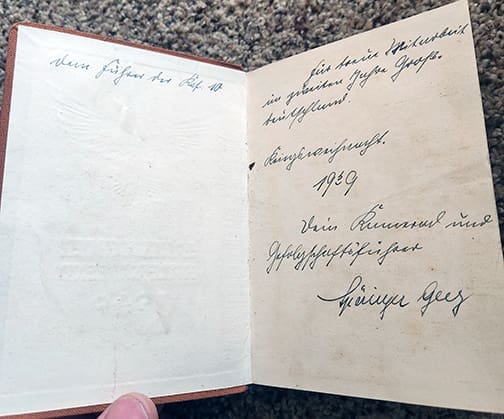 Dem Führer der Kef. 10
Für treue Mitarbeit
im zweiten Jahre Groß-
deutschland.
Kriegsweihnacht.
1939
Dein Kamerad und
Gefolgschaftsführer
Georg